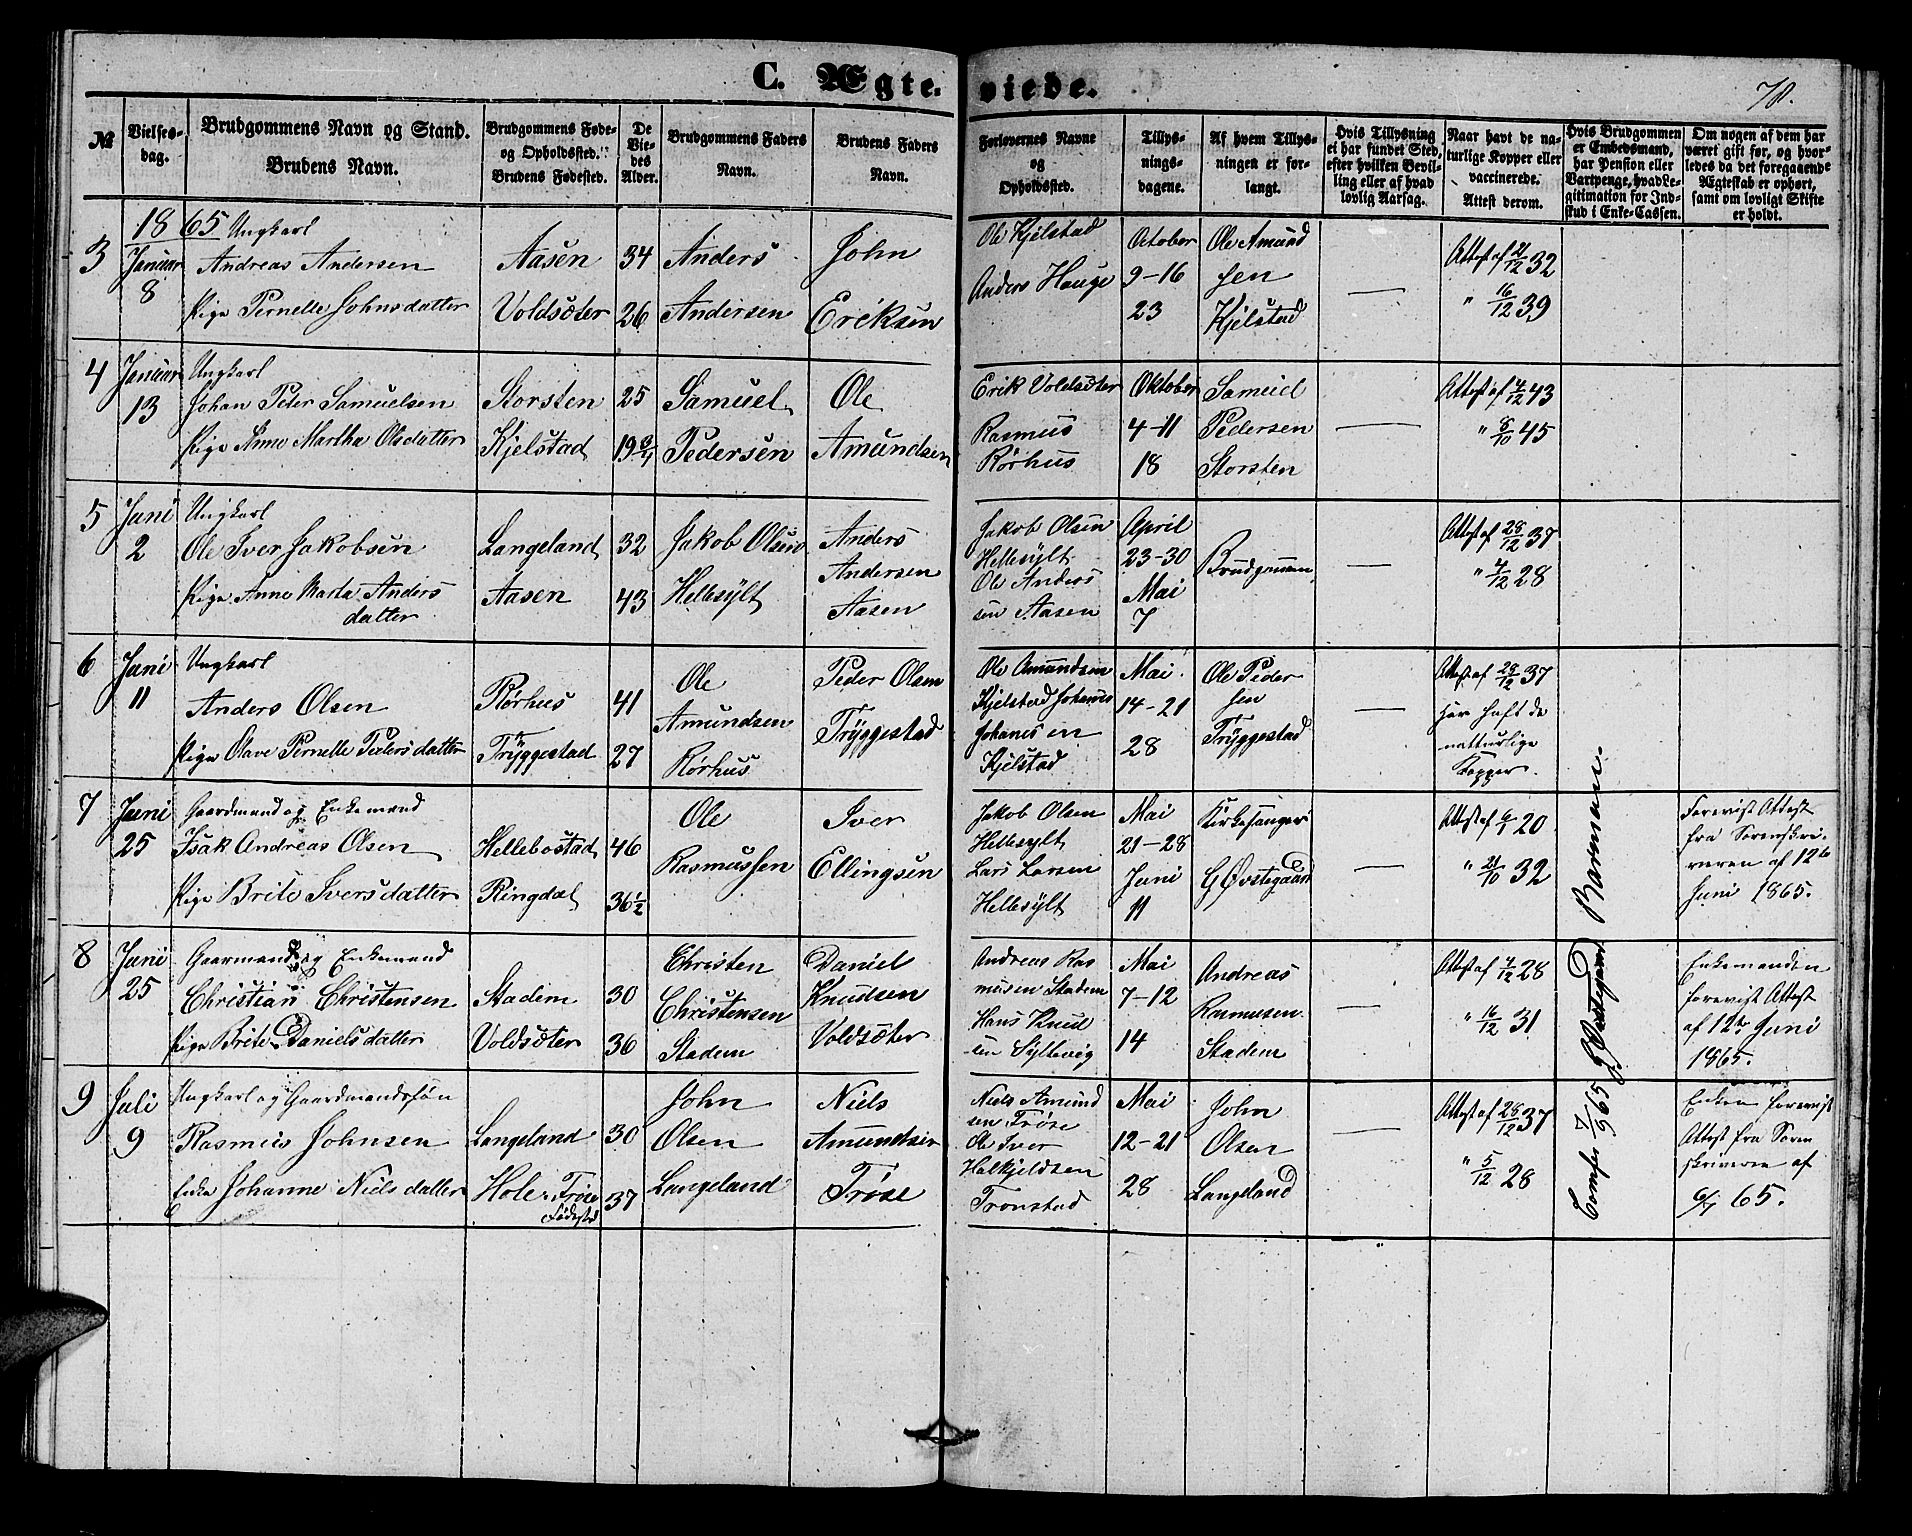 C. Ægte- viede.
78.
№
Vielses-
dag.
Brudgommens Navn og Stand.
Brudens Navn.
Brudgommens Føde-
og Opholdssted.
Brudens Fødested.
De
Vie-
des
Alder.
Brudgommens Faders
Navn.
Brudens Faders
Navn.
Forlovernes Navne
og
Opholdssted.
Tillys-
nings-
dagene.
Af hvem Tillys-
ningen er for-
langt.
Hvis Tillysning
ei har fundet Sted,
efter hvilken Bevil-
ling eller af hvad
lovlig Aarsag.
Naar havt de na-
turlige Kopper eller
vaccinerede.
Attest derom.
Hvis Brudgommen
er Embedsmand,
har Pension eller
Vartpenge, hvad Le-
gitimation for Ind-
skud i Enke-Cassen.
Om nogen af dem har
været gift før, og hvor-
ledes da det foregaaende
Ægteskab er ophørt,
samt om lovligt Skifte
er holdt.
1865
3
Januar
8
Ungkarl
Andreas Andersen
Pige Pernelle Johnsdatter
Aasen
Voldsæter
34
26
Anders
Andersen
John
Eriksen
Ole Kjelstad
Anders Hauge
October
9-16
23
Ole Amund
sen
Kjelstad
Attest af 21/12 32
" 16/12 39
4
Januar
13
Ungkarl
Johan Peter Samuelsen
Pige Anne Martha Olsdatter
Storsten
Kjelstad
25
19
Samuel
Pedersen
Ole
Amundsen
Erik Voldsæter
Rasmus
Rørhus
Oktober
4-11
18
Samuel
Pedersen
Storsten
Attest af 4/12 43
" 8/10 45
5
Juni
2
Ungkarl
Ole Iver Jakobsen
Pige Anne Marta Anders
datter
Langeland
Aasen
32
43
Jakob Olsen
Hellesylt
Anders
Andersen
Aasen
Jakob Olsen
Hellesylt
Ole Anders
sen Aasen
April
23-30
Mai
7
Brudgommen
Attest af 28/12 37
" 4/12 28
6
Juni
11
Ungkarl
Anders Olsen
Pige Olave Pernelle Pedersdatter
Rørhus
Tryggestad
41
27
Ole
Amundsen
Rørhus
Peder Olsen
Tryggestad
Ole Amundsen
Kjelstad Johannes
Johansen
Kjelstad
Mai
14-21
28
Ole Peder
sen
Tryggestad
Attest af 28/12 37
har haft de
natturlige
Kopper.
7
Juni
25
Gaardmand og Enkemand
Isak Andreas Olsen
Pige Brite Iversdatter
Hellebostad
Ringdal
46
36 1/2
Ole
Rasmussen
Iver
Ellingsen
Jakob Olsen
Hellesylt
Lars Larsen
Hellesylt
Mai
21-28
Juni
11
Kirkesanger
G Østegaard
Attest af 6/1 20
" 21/10 32
Forevist Attest
fra Sorenskri-
veren af 12te
Juni 1865.
8
Juni
25
Gaarmand og Enkemand
Christian Christensen
Pige Brite Danielsdatter
Stadem
Voldsæter
30
36
Christen
Christensen
Stadem
Daniel
Knudsen
Voldsæter
Andreas Ras
musen Stadem
Hans Knud
sen Syltevig
Mai
7-12
14
Andreas
Rasmusen
Stadem
Attest af 4/12 28
" 16/12 31
Enkemanden
forevist Attest
af 12te Juni
1865.
9
Juli
9
Ungkarl og Gaardmandssøn
Rasmus Johnsen
Enke Johanne Nielsdatter
Langeland
Hole Trøse
Fødested
30
37
John
Olsen
Langeland
Niels
Amundsen
Trøse
Niels Amund
sen Trøse
Ole Iver
Halkjeldsen
Tronstad
Mai
12-21
28
John
Olsen
Langeland
Attest af 28/12 37
" 5/12 28
Enken forevist
Attest fra Soren
skriveren af
6/7 65.
Confer 7/9 65 G Østegaard Barmann.